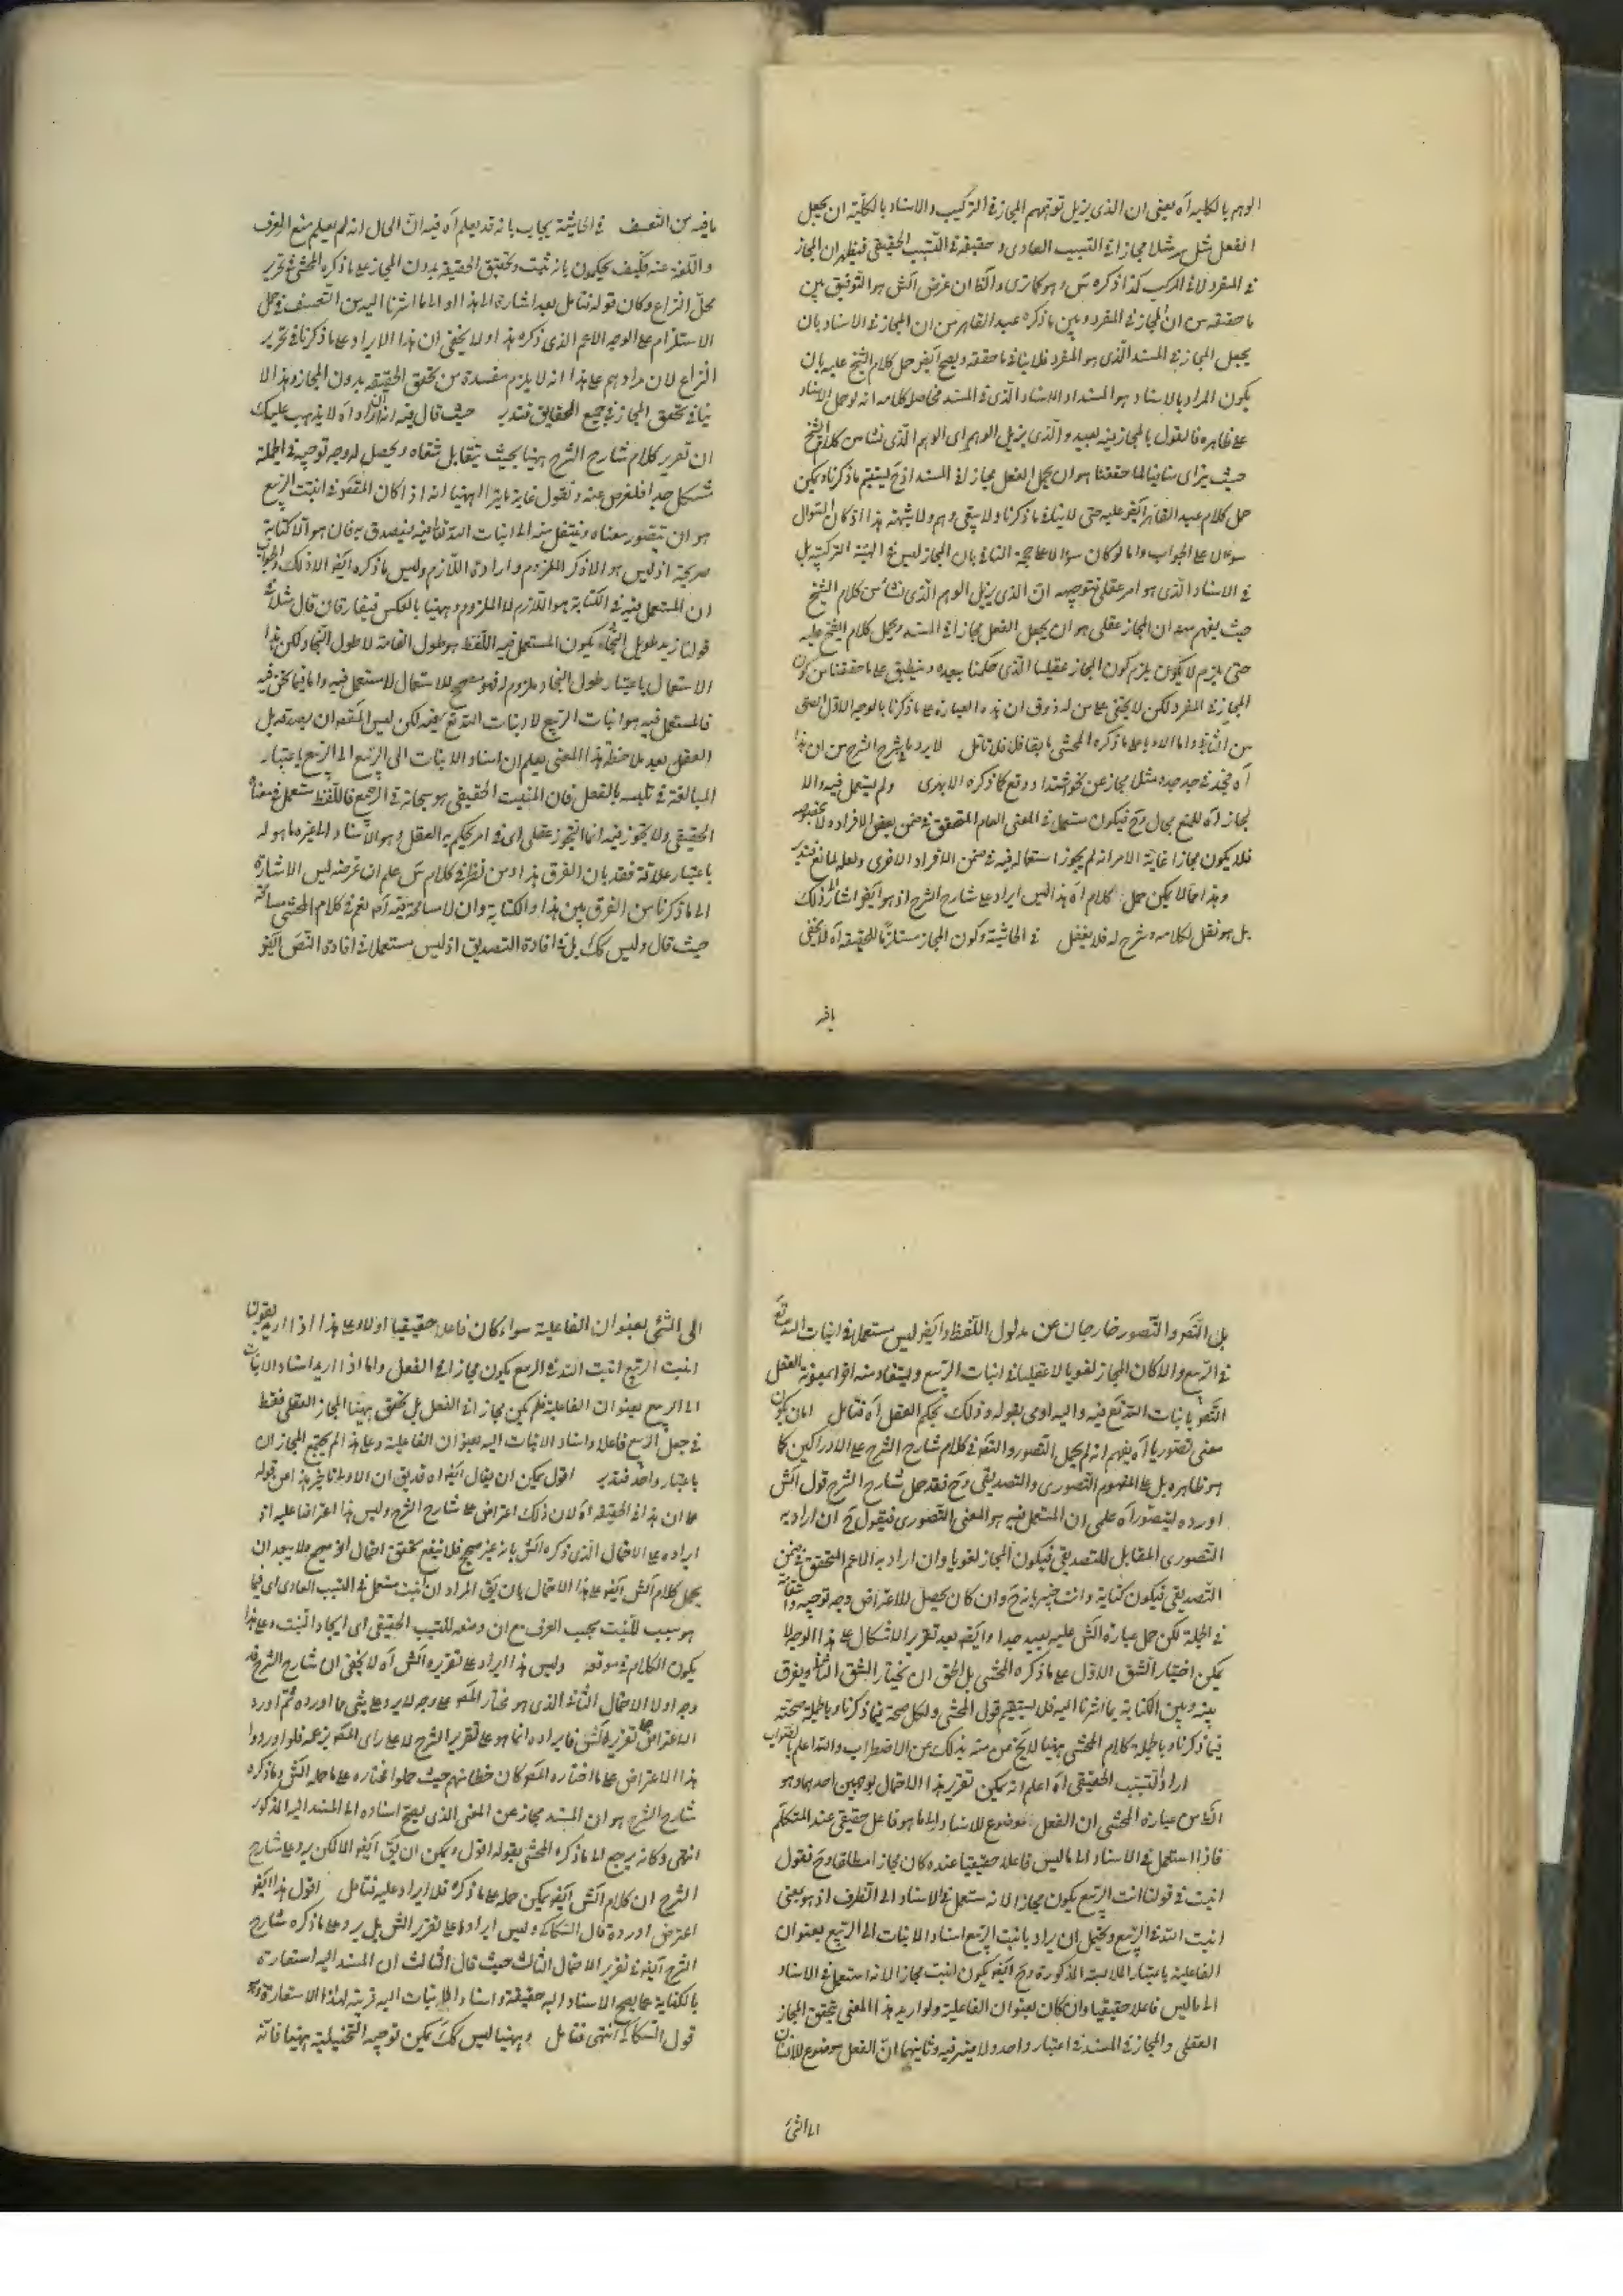 الوهم بالكلية آه يعنى ان الذى يزيل توهم المجاز فى التركيب والاسناد بالكلية ان يجعل
الفعل مثل سر مثلا مجازا فى التسبيب العادى وحقيقة فى التسبيب الحقيقى فيظهر ان المجاز
فى المفرد لا فى المركب كذا ذكره س وهو كما ترى والظ ان غرض الش هو التوفيق بين
ما حققه من ان المجاز فى المفرد وبين ما ذكره عبد القاهر من ان المجاز فى الاسناد بان
يجعل المجاز فى المسند الذى هو المفرد فلا ينافى ما حققه ويصح ايض حمل كلام الشيخ عليه بان
يكون المراد بالاسناد هو المسند او الاسناد الذى فى المسند فحاصل كلامه انه لو حمل الاسناد
على ظاهره فالقول بالمجاز فيه بعيد والذى يزيل الوهم اى الوهم الذى نشا من كلام الشيخ
حيث يراى منافيا لما حققنا هو ان يجعل الفعل مجازا فى المسند اذ ح يستقيم ما ذكرنا ويمكن
حمل كلام عبد القاهر ايض عليه حتى لا ينافى ما ذكرنا ولا يبقى وهم ولا شبهة هذا اذ كان السوال
سوالا على الجواب واما لو كان سوالا على حجة النافى بان المجاز ليس فى الهيئة التركيبية بل
فى الاسناد الذى هو امر عقلى فتوجيهه ان الذى يزيل الوهم الذى نشا من كلام الشيخ
حيث يفهم منه ان المجاز عقلى هو ان يجعل الفعل مجازا فى المسند ويحمل كلام الشيخ عليه
حتى يلزم لا يكون يلزم كون المجاز عقليا الذى حكمنا ببعده وينطبق على ما حققنا من كون
المجاز فى المفرد لكن لا يخفى على من له ذوق ان هذه العبارة على ما ذكرنا بالوجه الاول الصق
من الثانى واما الاول على ما ذكره المحشى بابقا فلا فلا تأمل لا يرد ما يشرح الشرح من ان هذا
آه فجد فى جد جده مثلا مجاز عن نحو اشتد او وقع كما ذكره الابهرى ولم يستعمل فيه والا
لجاز آه للمنع مجال وح فيكون مستعملا فى المعنى العام المتحقق فى ضمن بعض الافراد ولا بخصوصه
فلا يكون مجازا غاية الامر انه لم يجوز استعماله فيه فى ضمن الافراد الاخرى ولعله لمانع فتدبر
وهذا مما لا يمكن حمل كلام آه هذا ليس ايراد على شارح الشرح اذ هو ايض اشار الى ذلك
بل هو نقل لكلامه وشرح له فلا يغفل فى الحاشية وكون المجاز مستلزما للحقيقة آه لا يخفى
ما فيه من التعسف فى الحاشية يجاب بانه قد يعلم آه فيه ان الحال انه لم يعلم منع العرف
واللغة عنه فكيف يحكمون بانه ثبت وتحقق الحقيقة بدون المجاز على ما ذكره المحشى فى تحرير
محل النزاع وكان قوله فتامل بعد اشارة الى هذا او الى ما اشرنا اليه من التعسف فى حمل
الاستلزام على الوجه الاعم الذى ذكره هذا ولا يخفى ان هذا الايراد على ما ذكرنا فى تحرير
النزاع لان مرادهم على هذا انه لا يلزم مفسدة من تحقق الحقيقة بدون المجاز وهذا لا
ينافى تحقق المجاز فى جميع الحقايق فتدبر حيث قال فيه انه ان اراد آه لا يذهب عليك
ان تقرير كلام شارح الشرح ههنا بحيث يتقابل شقاه ويحصل له وجه توجيه فى الجملة
مشكل جدا فلنعرض عنه ونقول غاية ما يترا ههنا انه اذا كان المقصود فى انبت الربيع
هو ان يتصور معناه وينتقل منه الى انبات الله تعالى فيه فيصدق به فان هو الا كناية
صريحة اذ ليس هو الا ذكر الملزوم وارادة اللازم وليس ما ذكره ايض الا ذلك والجواب
ان المستعمل فيه فى الكناية هو اللازم لا الملزوم وههنا بالعكس فيفارقان قال مثلا فى
قولنا زيد طويل النجاد يكون المستعمل فيه اللفظ هو طول القامة لا طول النجاد لكن هذا
الاستعمال باعتبار طول النجاد ملزوم له فهو مصحح للاستعمال لا مستعمل فيه واما فيما نحن فيه
فالمستعمل فيه هو انبات الربيع لا انبات الله تع فيه لكن ليس المقصود ان يصدق به بل
العقل بعد ملاحظة هذا المعنى يعلم ان اسناد الانبات الى الربيع الى الربيع باعتبار
المبالغة فى تلبسه بالفعل فان المنبت الحقيقى هو سبحانه فى الجميع فاللفظ مستعمل فى معناه
الحقيقى ولا تجوز فيه انما التجوز عقلى اى فى امر يحكم به العقل وهو الاسناد الى غير ما هو له
باعتبار علاقة فقد بان الفرق هذا ومن نظر فى كلام س علم ان غرضه ليس الاشارة
الى ما ذكرنا من الفرق بين هذا والكناية وان لا مسامحة فيه آه نعم فى كلام المحشى مسامحة
حيث قال وليس كك بل فى افادة التصديق اذ ليس مستعملا فى افادة النص ايض
يافيه
بل التصو والتصور خارجان عن مدلول اللفظ وايض ليس مستعملا فى انبات الله تع
فى الربيع والا كان المجاز لغويا لا عقليا بل فى انبات الربيع ويستفاد منه اخر بمعونة العقل
التص بانبات الله تع فيه واليه اومى بقوله وذلك بحكم العقل آه فتامل اما ان يكون
معنى تصوريا آه يفهم انه لم يحمل التصور والتص فى كلام شارح الشرح على الادراكين كما
هو ظاهره بل على المفهوم التصورى والتصديقى وح فقد حمل شارح الشرح قول الش
اورده ليتصور آه على ان المستعمل فيه هو المعنى التصورى فيقول ح ان اراد به
التصورى المقابل للتصديقى فيكون المجاز لغويا وان اراد به الاعم المتحقق فى ضمن
التصديقى فيكون كناية وانت خبير بانه ح وان كان يحصل للاعتراض وجه توجيه وشقاه
فى الجملة لكن حمل عبارة الش عليه بعيد جدا وايض بعد تقرير الاشكال على هذا الوجه لا
يمكن اختيار الشق الاول على ما ذكره المحشى بل الحق ان يختار الشق الثانى ويفرق
بينه وبين الكناية بما اشرنا اليه فلا يستقيم قول المحشى ولكل صحة فيما ذكرنا وبالجملة صحته
فيما ذكرنا وبالجملة كلام المحشى ههنا لا يخ عن مثله بذلك عن الاضطراب والله اعلم بالصواب
اراد التسبب الحقيقى آه اعلم انه يمكن تقرير هذا الاحتمال بوجهين احدهما وهو
الظ من عبارة المحشى ان الفعل موضوع للاسناد الى ما هو فاعل حقيقى عند المتكلم
فاذا استعمل فى الاسناد الى ما ليس فاعلا حقيقيا عنده كان مجازا مطلقا وح فنقول
انبت فى قولنا انبت الربيع يكون مجازا لانه مستعمل فى الاسناد الى الظرف اذ هو بمعنى
انبت الله فى الربيع ويحتمل ان يراد بانبت الربيع اسناد الانبات الى الربيع بعنوان
الفاعلية باعتبار الملابسة المذكورة وح ايض يكون انبت مجازا لانه استعمل فى الاسناد
الى ما ليس فاعلا حقيقيا وان كان بعنوان الفاعلية ولو اريد هذا المعنى يتحقق المجاز
العقلى والمجاز فى المسند فى اعتبار واحد ولا ضير فيه وثانيهما ان الفعل موضوع للاسناد
الى الشئ
الى الشئ بعنوان الفاعلية سواء كان فاعلا حقيقيا او لا وعلى هذا اذا اريد بقولنا
انبت الربيع انبت الله فى الربيع يكون مجازا فى الفعل واما اذا اريد اسناد الانبات
الى الربيع بعنوان الفاعلية فلم يكن مجازا فى الفعل بل تحقق ههنا المجاز العقلى فقط
فى جعل الربيع فاعلا واسناد الانبات اليه بعنوان الفاعلية وعلى هذا لم يجتمع المجازان
باعتبار واحد فتدبر اقول يمكن ان يقال ايض آه قد يق ان الاولى تاخير هذا عن قوله
على ان هذا فى الحقيقة آه لان ذلك اعتراض على شارح الشرح وليس هذا اعتراضا عليه اذ
ايراده على الاحتمال الذى ذكره الش بانه غير صحيح فلا ينفع تحقق احتمال اخر صحيح ولا يبعد ان
يحمل كلام الش ايض على هذا الاحتمال بان يق المراد ان انبت مستعمل فى التسبب العادى اى فيما
هو سبب للنبت بحسب العرف مع ان وضعه للتسبب الحقيقى اى ايجاد النبت وعلى هذا
يكون الكلام فى موقعه وليس هذا ايراد على تقرير الش آه لا يخفى ان شارح الشرح قد
وجه اولا الاحتمال الثانى الذى هو مختار المص على وجه لا يرد عليه شئ مما اورده ثم اورد
الاعتراض على تقرير الش فايراده انما هو على تقرير الشرح لا على راى المص بزعمه فلو اوردوا
هذا الاعتراض على ما اختاره المص كان خطا منهم حيث حملوا مختاره على ما حمله الش وما ذكره
شارح الشرح هو ان المسند مجاز عن المعنى الذى يصح اسناده الى المسند اليه المذكور
انتهى وكانه يرجع الى ما ذكره المحشى بقوله اقول ويمكن ان يق ايض الا لكن يرد على شارح
الشرح ان كلام الش ايض يمكن حمله على ما ذكره فلا ايراد عليه فتامل اقول هذا ايض
اعتراض اورده قال السكاكى وليس ايراد على تقرير الش بل يرد على ما ذكره شارح
الشرح ايض فى تقرير الاحتمال الثالث حيث قال الثالث ان المسند اليه استعارة
بالكناية عما يصح الاسناد اليه حقيقة واسناد الانبات اليه قرينة لهذا الاستعارة وهو
قول السكاكى انتهى فتامل وههنا ليس كك يمكن توجيه التخييلية ههنا فانه